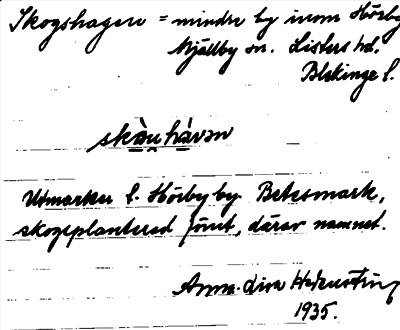 Skogshagen = mindre by inom Hörby
Mjällby sn. Listers hd.
Blekinge l.
skàu hàvan
Utmarker t. Hörby by. Betesmark,
skogsplanterad förut, därav namnet.
Anna-Lisa
1935.